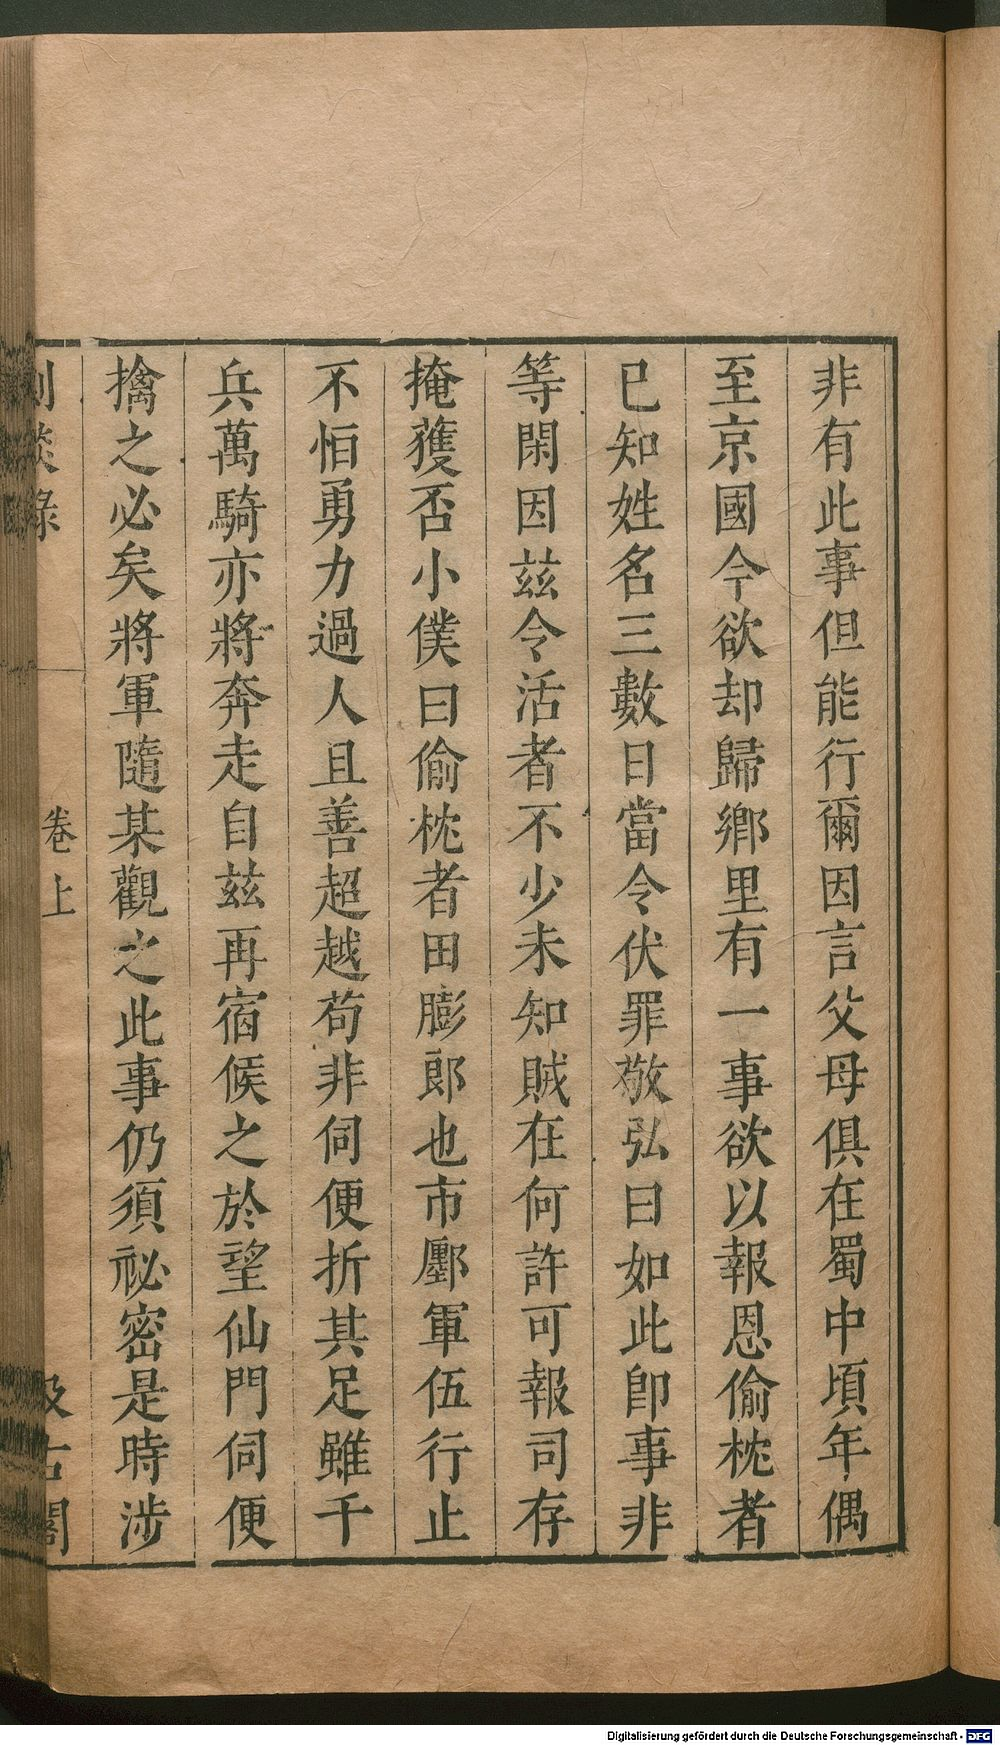 非有此事但能行爾因言父母俱在蜀中頃年偶
至京國今欲却歸鄉里有一事欲以報恩偷枕者
已知姓名三數日當令伏罪敬弘曰如此卽事非
等閑因兹令活者不少未知賊在何許可報司存
掩獲否小僕曰偷枕者田膨郎也市廛軍伍行止
不恒勇力過人且善超越苟非伺便折其足雖千
兵萬騎亦將奔走自兹再宿候之於望仙門伺便
擒之必矣將軍隨某觀之此事仍須祕密是時涉
劇談錄 卷上 汲古閣
Digitalisierung gefördert durch die Deutsche Forschungsgemeinschaft - DFG